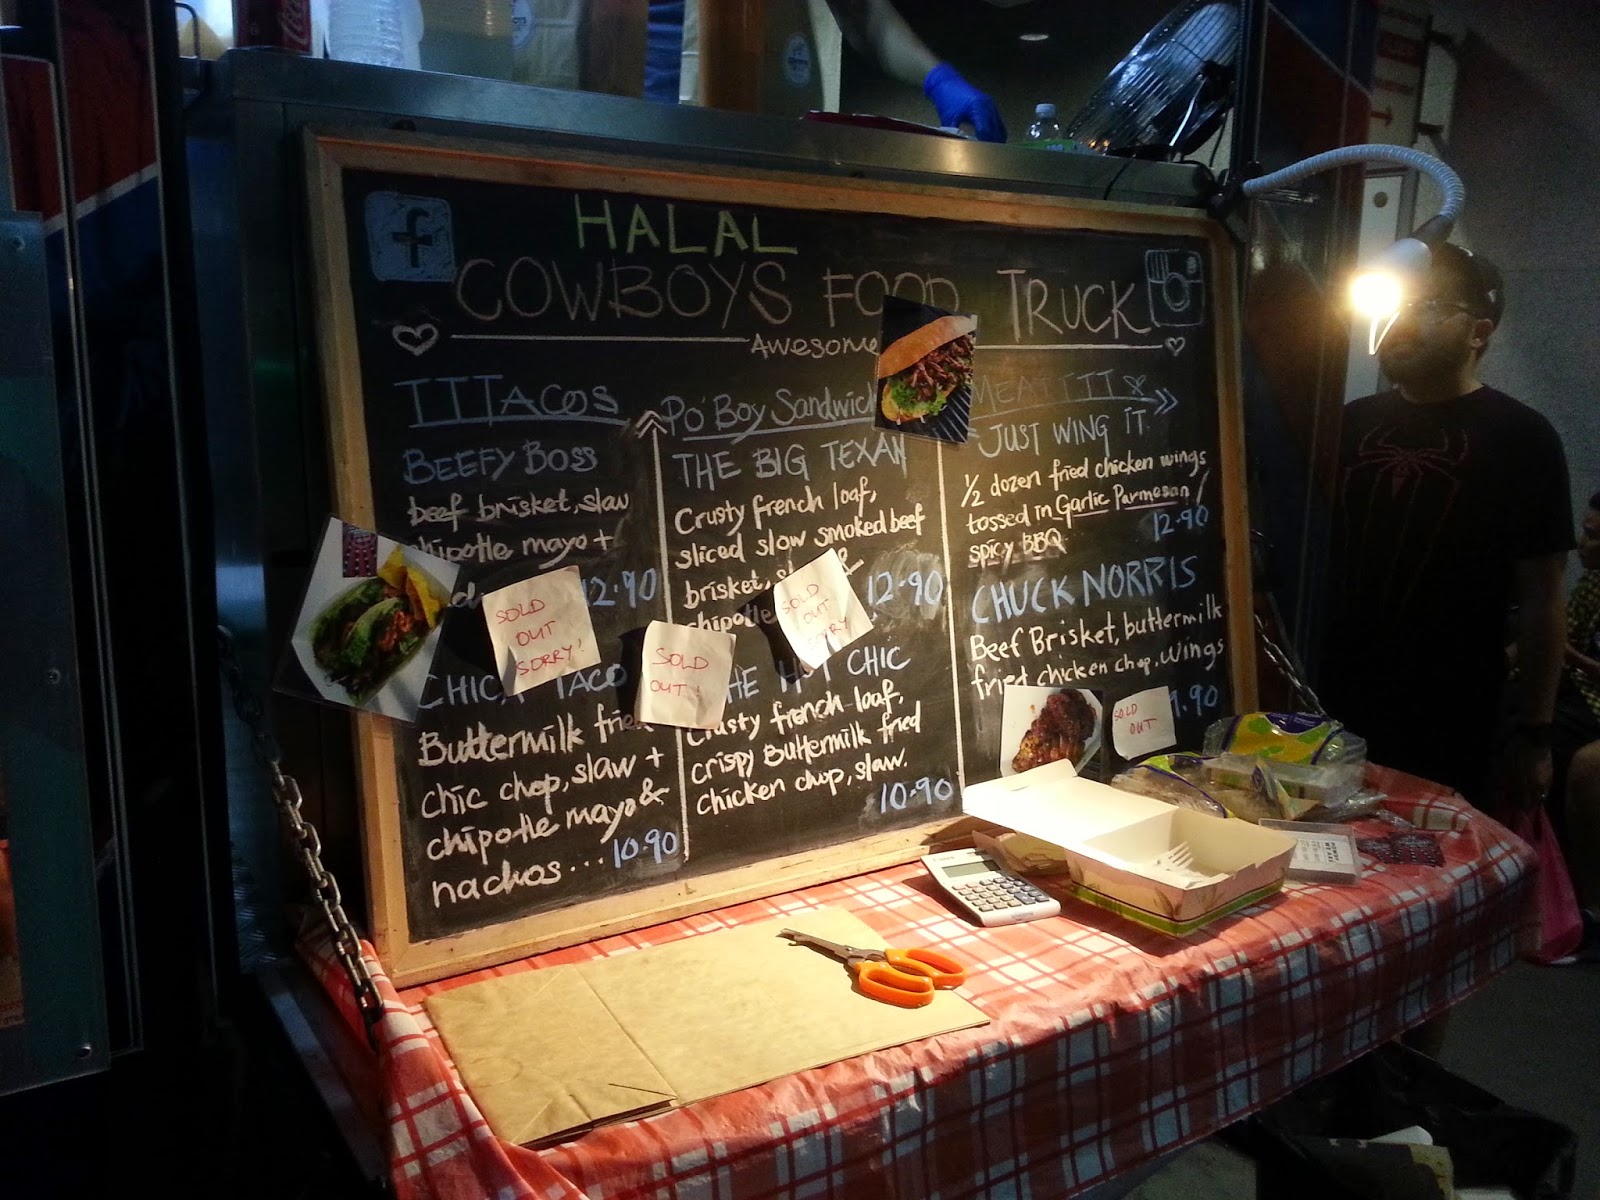 f
HALAL
COWBOYS FOOD TRUCK
AWESOME
IIITACOS
BEEFY BOSS
beef brisket, slaw
chipotle mayo +
12.90
SOLD
OUT
SORRY!
TACO
Buttermilk fried
chic chop, slaw +
chipotle mayo &
nachos... 10.90
SOLD
OUT!
PO'BOY SANDWICH
THE BIG TEXAN
Crusty french loaf,
sliced slow smoked beef
brisket, &
chipotle 12.90
SOLD
OUT
SORRY
THE HOT CHIC
Crusty french loaf,
crispy Buttermilk fried
chicken chop, slaw.
10.90
MEATIII
JUST WING IT.
1/2 dozen fried chicken wings
tossed in Garlic Parmesan /
spicy BBQ 12.90
CHUCK NORRIS
Beef Brisket, buttermilk
fried chicken chop, wings
.90
SOLD
OUT